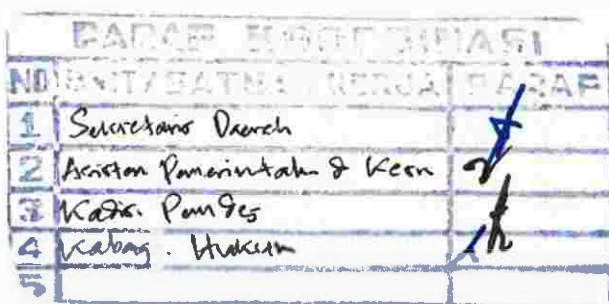 PARAF KOORDINASI
NO UNIT/SATUAN KERJA PARAF
1 Sekretaris Daerah
2 Asisten Pemerintahan & Kesra
3 Kadis. PemDes
4 Kabag. Hukum
5